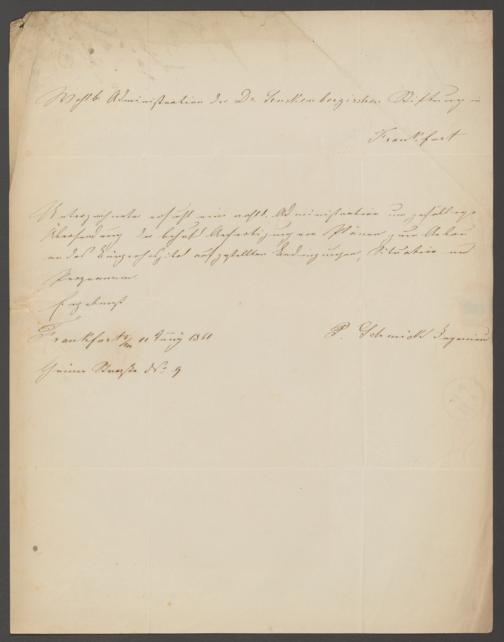 Wohllb. Administration der Dr. Senckenbergischen Stiftung in
Frankfurt
Unterzeichneter ersucht eine wohll. Administration um gefällige
Übersendung der behufs Anfertigung von Plänen zum Anbau
an das Bürgerhospital aufgestellten Bedingungen, Situation und
Programm.
Ergebenst
Frankfurt a/M 11 Juny 1861
P. Schmick Ingenieur
Straße No. 9